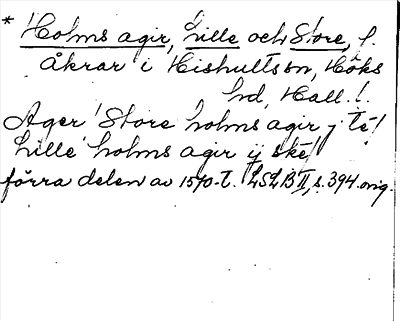 * Holms agir, Lille och Store, f.
åkrar i Hishults sn, Höks
hd, Hall.
Ager Store holms agir j te!
Lille holms agir ij ske!
förra delen av 1570-t. LSLB II, s. 394 orig.